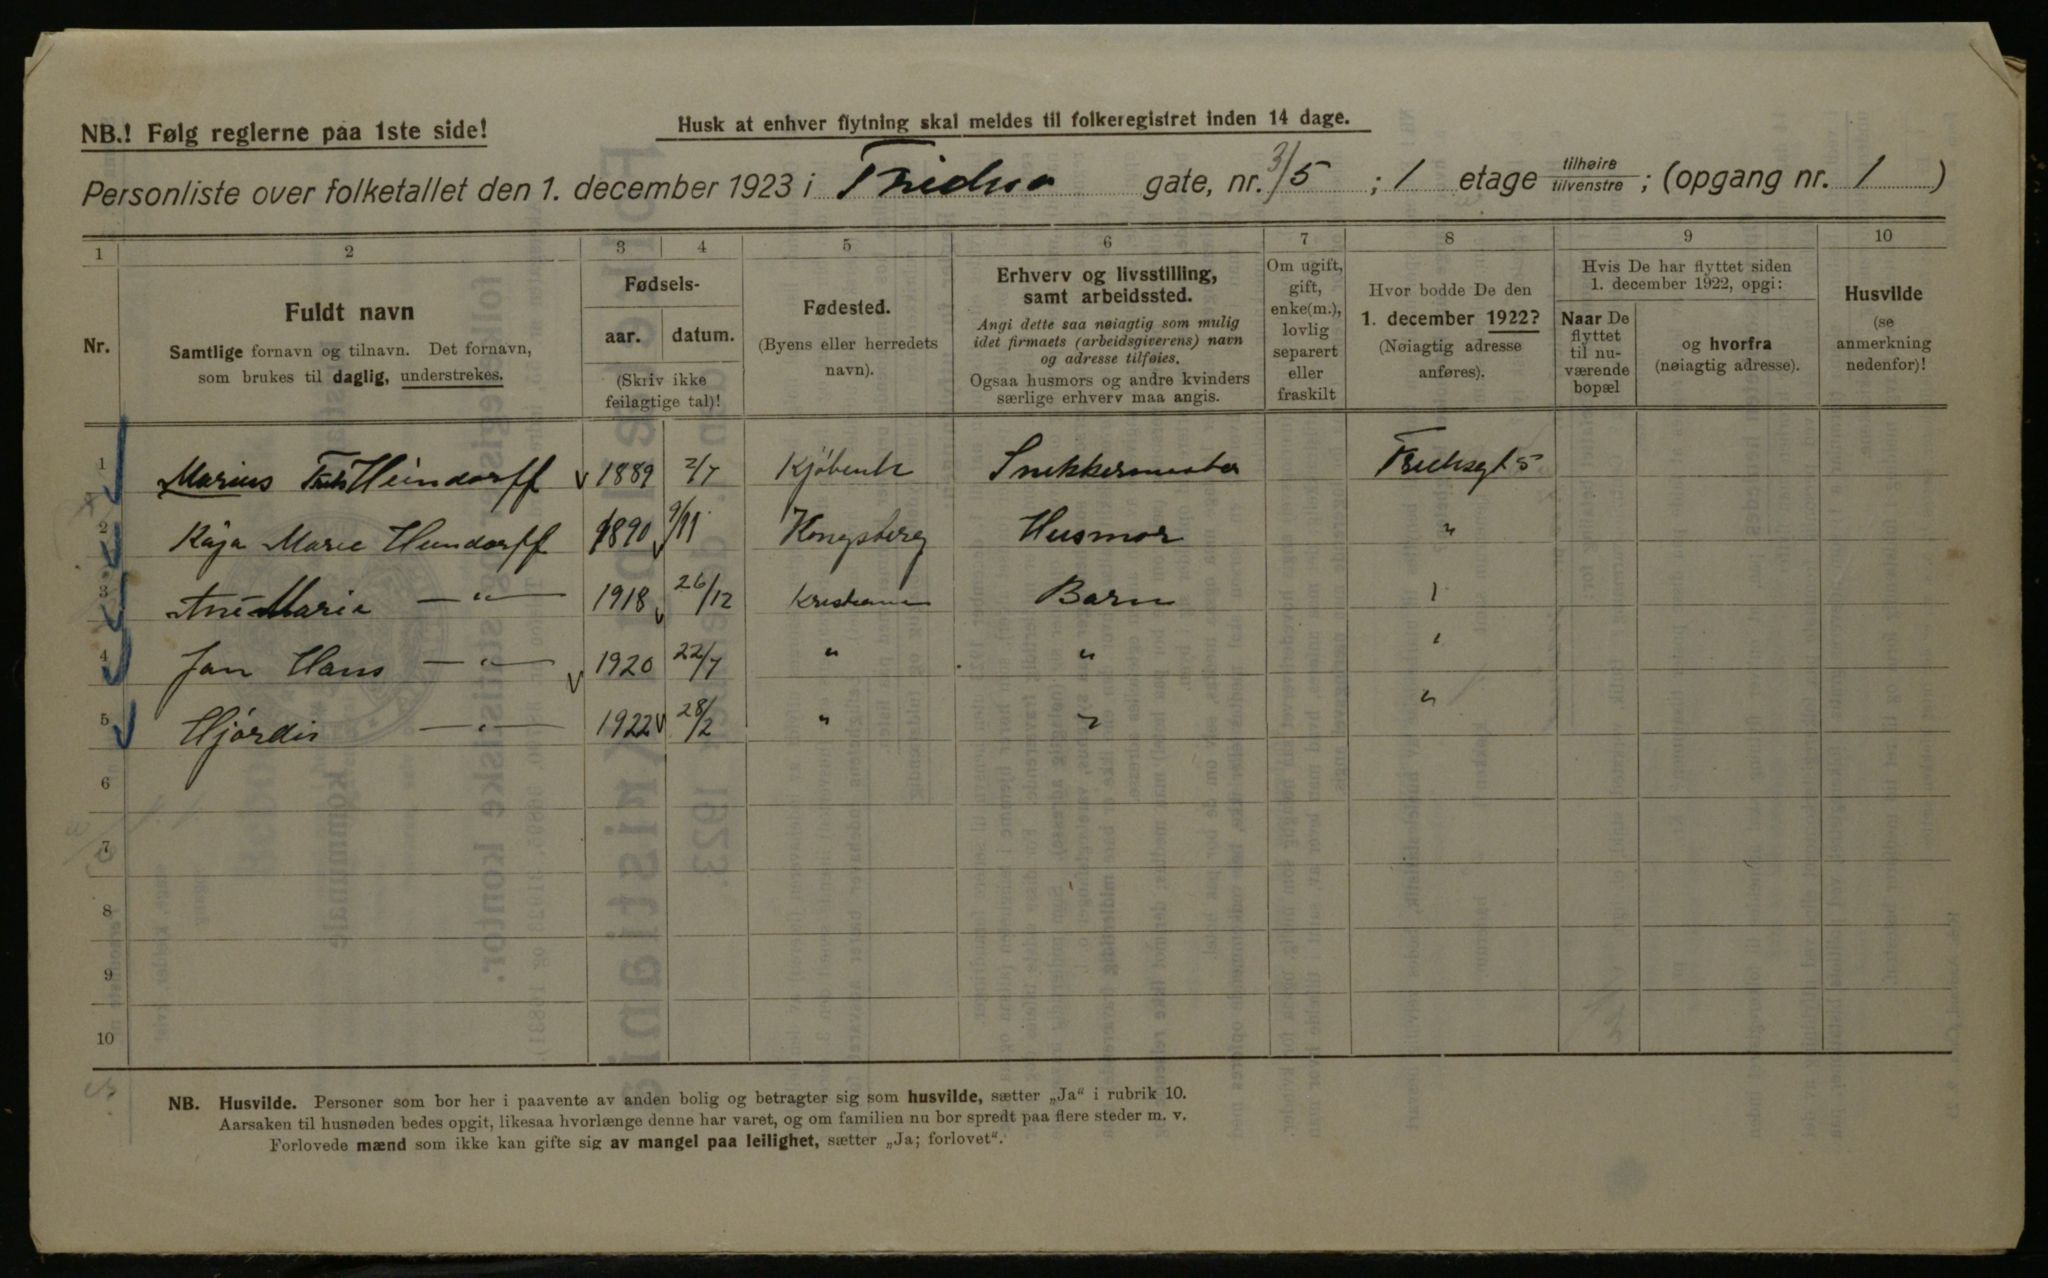 NB.! Følg reglerne paa 1ste side!
Husk at enhver flytning skal meldes til folkeregistret inden 14 dage.
Personliste over folketallet den 1. december 1923 i gate, nr. 3/5 ; 1 etage tilhøire tilvenstre ; (opgang nr. 1 )
1 2 3 4 5 6 7 8 9 10
Nr.
Fuldt navn
Samtlige fornavn og tilnavn. Det fornavn,
som brukes til daglig, understrekes.
Fødsels-
aar. datum.
(Skriv ikke
feilagtige tal)!
Fødested.
(Byens eller herredets
navn).
Erhverv og livsstilling,
samt arbeidssted.
Angi dette saa nøiagtig som mulig
idet firmaets (arbeidsgiverens) navn
og adresse tilføies.
Ogsaa husmors og andre kvinders
særlige erhverv maa angis.
Om ugift,
gift,
enke(m.),
lovlig
separert
eller
fraskilt
Hvor bodde De den
1. december 1922?
(Nøiagtig adresse
anføres).
Hvis De har flyttet siden
1. december 1922, opgi:
Naar De
flyttet
til nu-
værende
bopæl
og hvorfra
(nøiagtig adresse).
Husvilde
(se
anmerkning
nedenfor)!
1 Marius Heindorff 1889 2/7 Kjøbenh Snikkermester 5
2 Kaja Marie Heindorff 1890 9/11 Kongsberg Husmor "
3 Marie — " — 1918 26/12 Kristiania Barn "
4 Jan Hans — " — 1920 22/7 " " "
5 Hjördis — " — 1922 28/2 " " "
6
7
8
9
10
NB. Husvilde. Personer som bor her i paavente av anden bolig og betragter sig som husvilde, sætter „Ja“ i rubrik 10.
Aarsaken til husnøden bedes opgit, likesaa hvorlænge denne har varet, og om familien nu bor spredt paa flere steder m. v.
Forlovede mænd som ikke kan gifte sig av mangel paa leilighet, sætter „Ja; forlovet“.